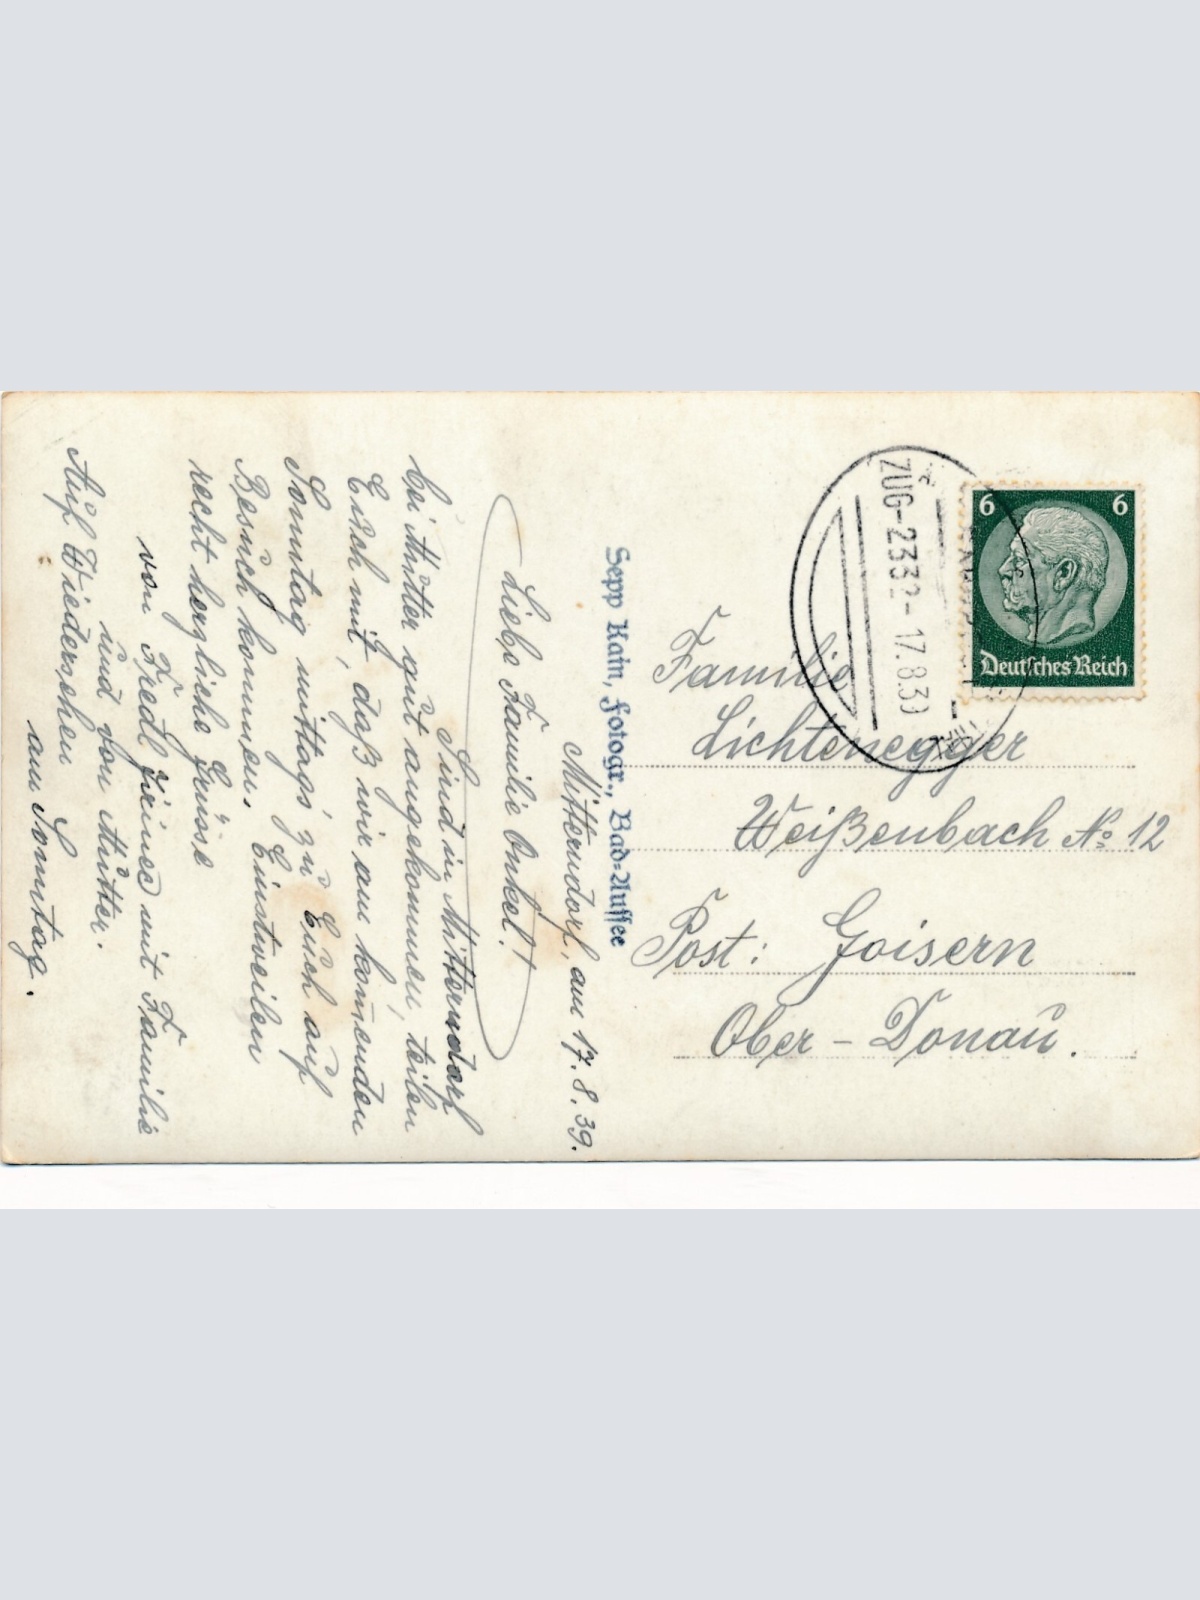 Mitterndorf, am 17.8.39.
Liebe Familie Onkel!
Sind in Mitterndorf
bei Mutter gut angekommen, teilen
Euch mit, daß wir am kom̄enden
Sonntag mittags zu Euch auf
Besuch kommen. Einstweilen
recht herzliche Grüsse
von Friedl mit Familie
und von Mutter.
Auf Wiedersehen
am Sonntag.
Sepp Kain, Fotogr., Bad-Aussee
ZUG-2332-17.8.39
6 6
Deutsches Reich
Familie
Lichtenegger
Weißenbach No 12
Post: Goisern
Ober-Donau.